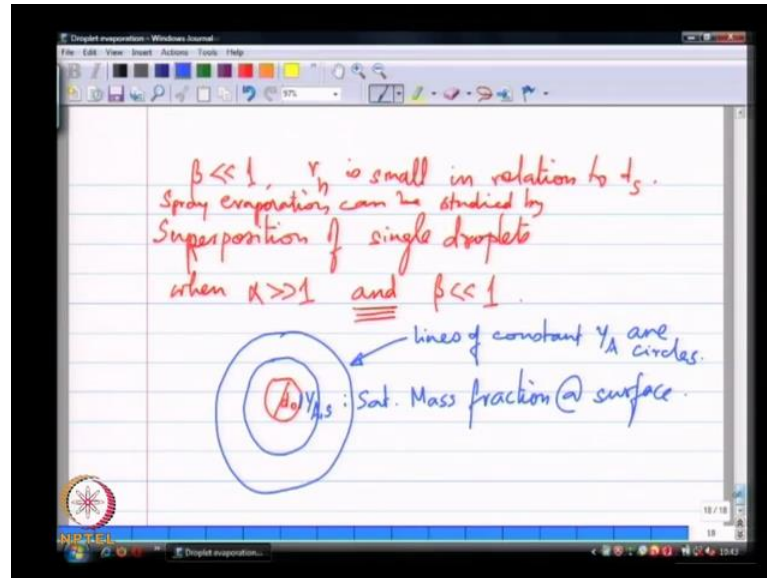 Droplet evaporation - Windows Journal
File Edit View Insert Actions Tools Help
97%
β<<1, r_h is small in relation to d_s.
Spray evaporation can be studied by
Superposition of single droplets
when α>>1 and β<<1.
lines of constant Y_A are
circles.
d_0 Y_A,s : Sat. Mass fraction @ surface.
18 / 18
18
NPTEL
Droplet evaporation...
10:43